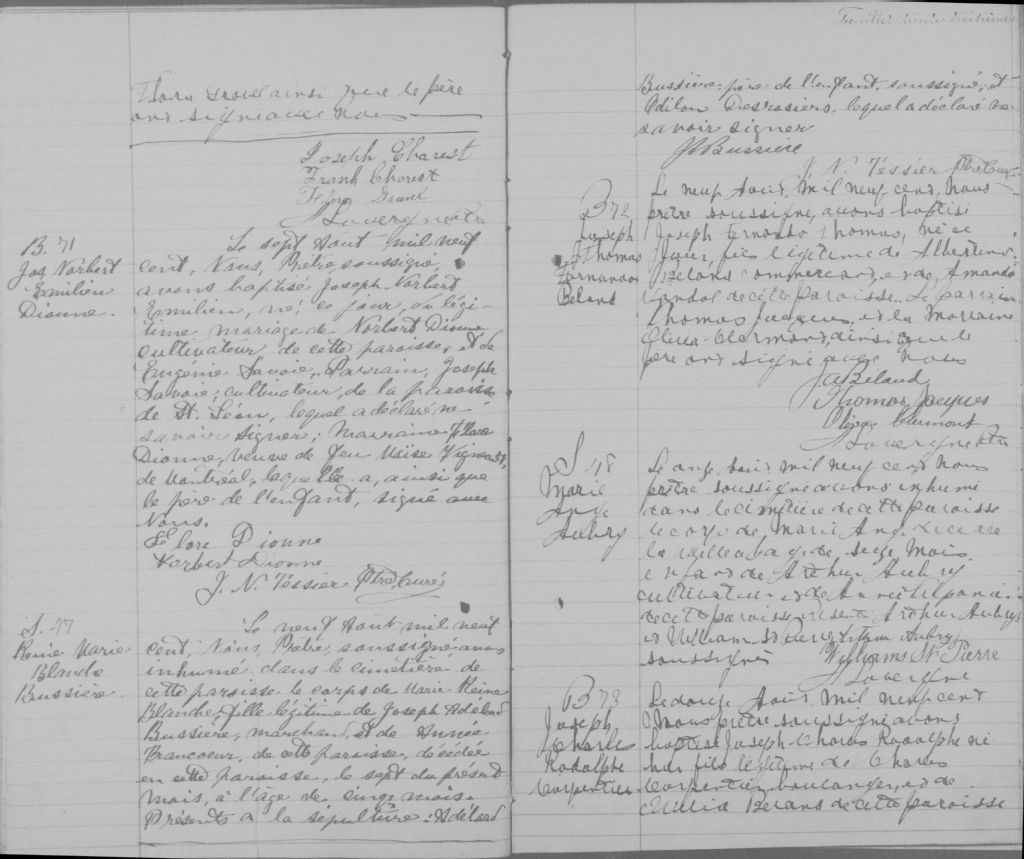 ainsi que le père
ont signé avec nous
Joseph Charest
Frank Charest
Flora
Lavergne
B. 71
Jos Norbert
Emilien
Dionne.
Le sept Aout mil neuf
cent, Nous, Prêtre soussigné,
avons baptisé Joseph Norbert
Emilien, né, ce jour, du légi-
time mariage de Norbert Dionne
cultivateur de cette paroisse, et de
Eugénie Savoie, Parrain, Joseph
Savoie, cultivateur, de la paroisse
de St. Léon, lequel a déclaré ne
savoir signer; Marraine Flore
Dionne, veuve de feu Moïse
de Montréal, laquelle a, ainsi que
le père de l'enfant, signé avec
Nous.
Flore Dionne
Norbert Dionne
J. N. Tessier Ptre Curé
S. 47
Reine Marie
Blanche
Bussière.
Le neuf Aout mil neuf
cent, Nous, Prêtre, soussigné avons
inhumé dans le cimetière de
cette paroisse le corps de Marie Reine
Blanche, fille légitime de Joseph Adélard
Bussière, marchand, et de Année
Francoeur, de cette paroisse, décédée
en cette paroisse, le sept du présent
mois, à l'âge de cinq mois.
Présents a la sépulture: Adélard
Feuillet trente troisième
Bussière père de l'enfant, soussigné, et
Odilon Desrosiers, lequel a déclaré ne
savoir signer
Bussiere
J. N. Tessier Ptre Curé
B 72
Joseph
Thomas
Fernando
Beland
Le neuf Aout, Mil neuf cent, Nous
prêtre soussigné, avons baptisé
Joseph Fernando Thomas, né ce
jour, fils légitime de Albertino
Beland commercant, et de Amanda
Vandal de cette paroisse. Le parrain
Thomas Jacques et la Marraine
Clermont, ainsi que le
père ont signé avec Nous
Beland
Thomas Jacques
Clermont
Lavergne
S 48
Marie
Ange
Aubry
Le onze Aout, mil neuf cent, Nous
prêtre soussigné avons inhumé
dans le cimetière de cette paroisse
le corps de Marie Ange décédée
la veille a l'age de seize Mois
enfant de Arthur Aubry
cultivateur et de
de cette paroisse présent Arthur Aubry
et William St Pierre
soussignés
Arthur Aubry
Williams St Pierre
Lavergne
B 73
Joseph
Charles
Rodolphe
Carpentier
Le douze Aout, Mil neuf cent
Nous prêtre soussigné avons
baptisé Joseph Charles Rodolphe né
hier fils légitime de Charles
Carpentier boulanger, et de
Beland de cette paroisse